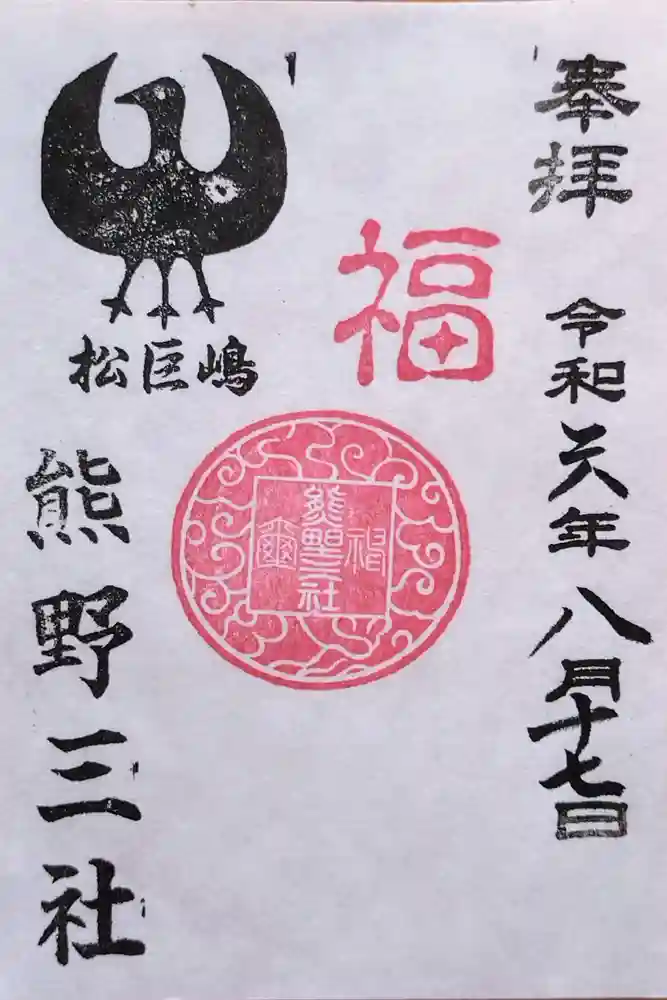 奉拝
令和六年八月十七日
福
熊野三社
松巨嶋
熊野三社